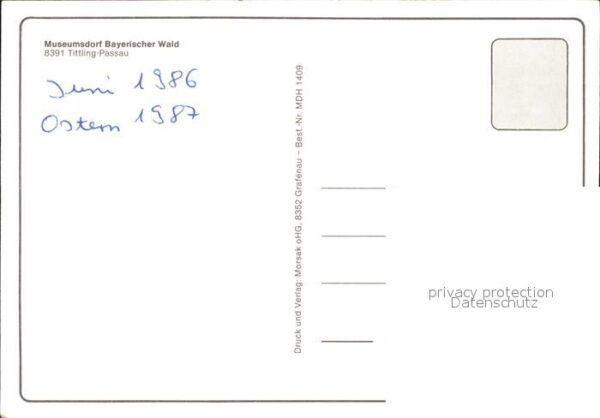 Museumsdorf Bayerischer Wald
8391 Tittling-Passau
Juni 1986
Ostern 1987
Druck und Verlag: Morsak oHG, 8352 Grafenau – Best.-Nr. MDH 1409
privacy protection
Datenschutz